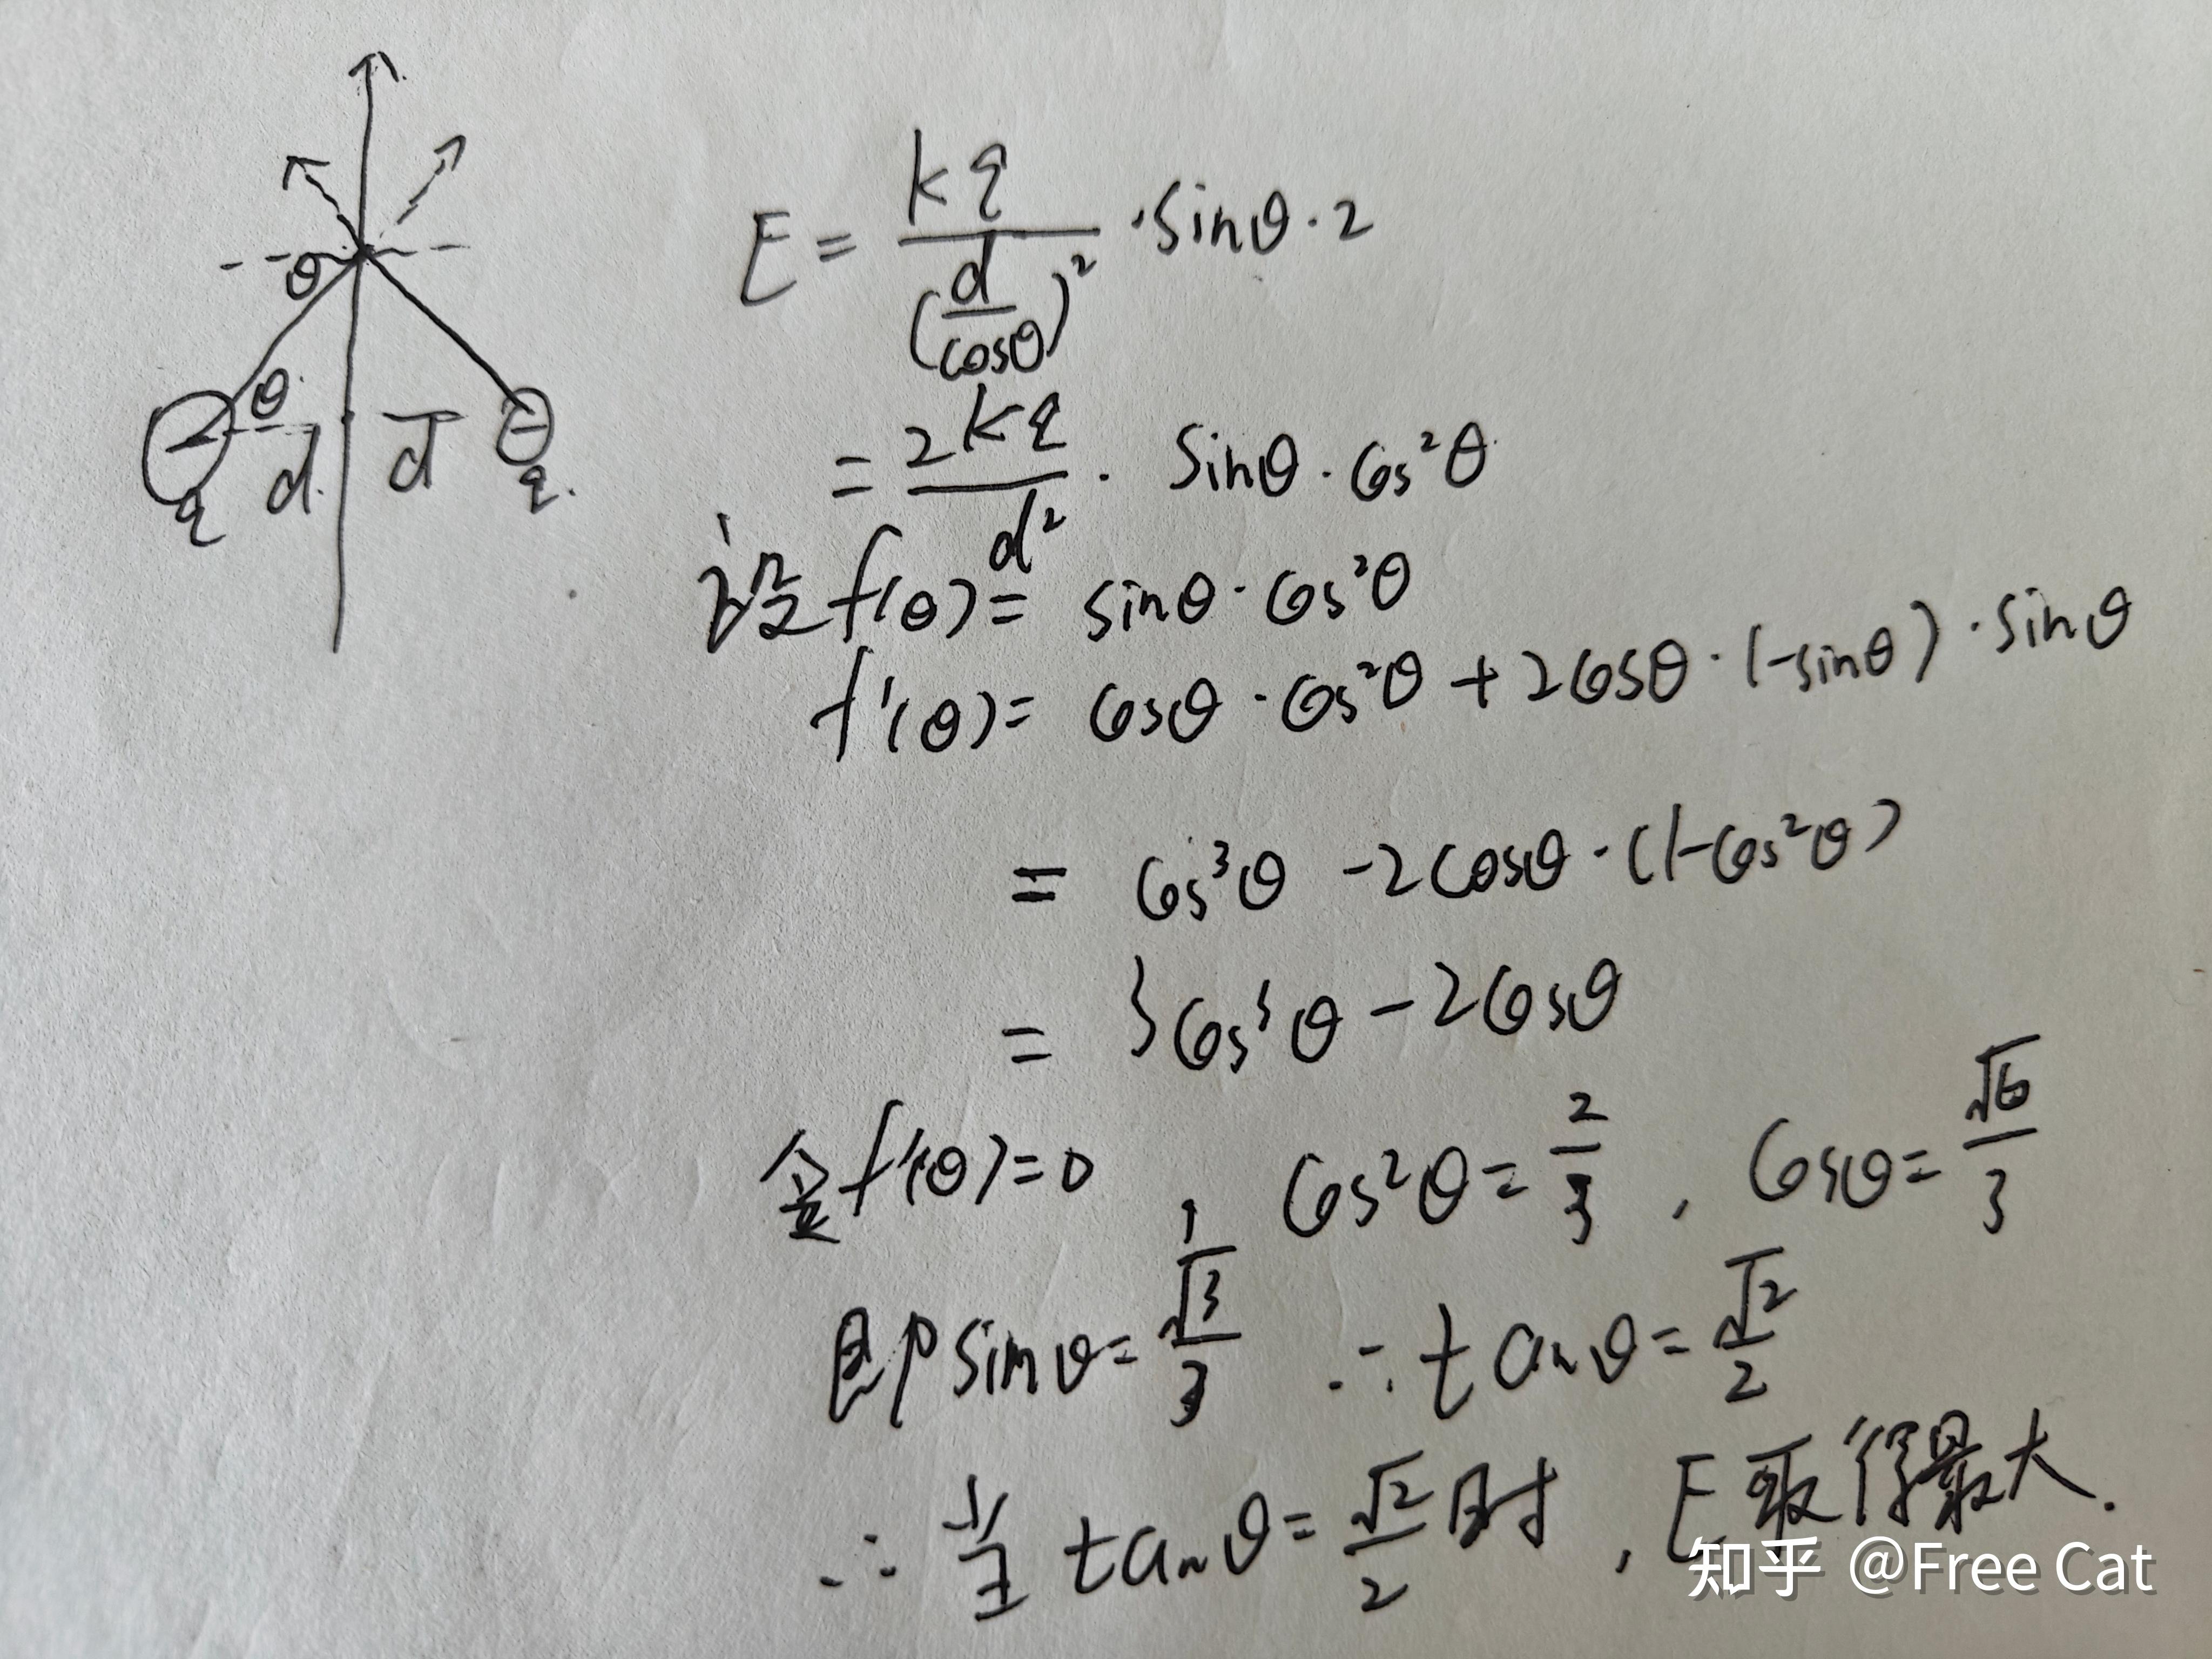 θ
θ
d d
q q
E = kq/(d/cosθ)² · sinθ · 2
= 2kq/d² · sinθ · cos²θ
设 f(θ) = sinθ · cos²θ
f'(θ) = cosθ · cos²θ + 2cosθ · (-sinθ) · sinθ
= cos³θ - 2cosθ · (1-cos²θ)
= 3cos³θ - 2cosθ
令 f'(θ) = 0 , cos²θ = 2/3 , cosθ = √6/3
即 sinθ = √3/3 ∴ tanθ = √2/2
∴ 当 tanθ = √2/2 时 , E 取得最大.
知乎 @Free Cat